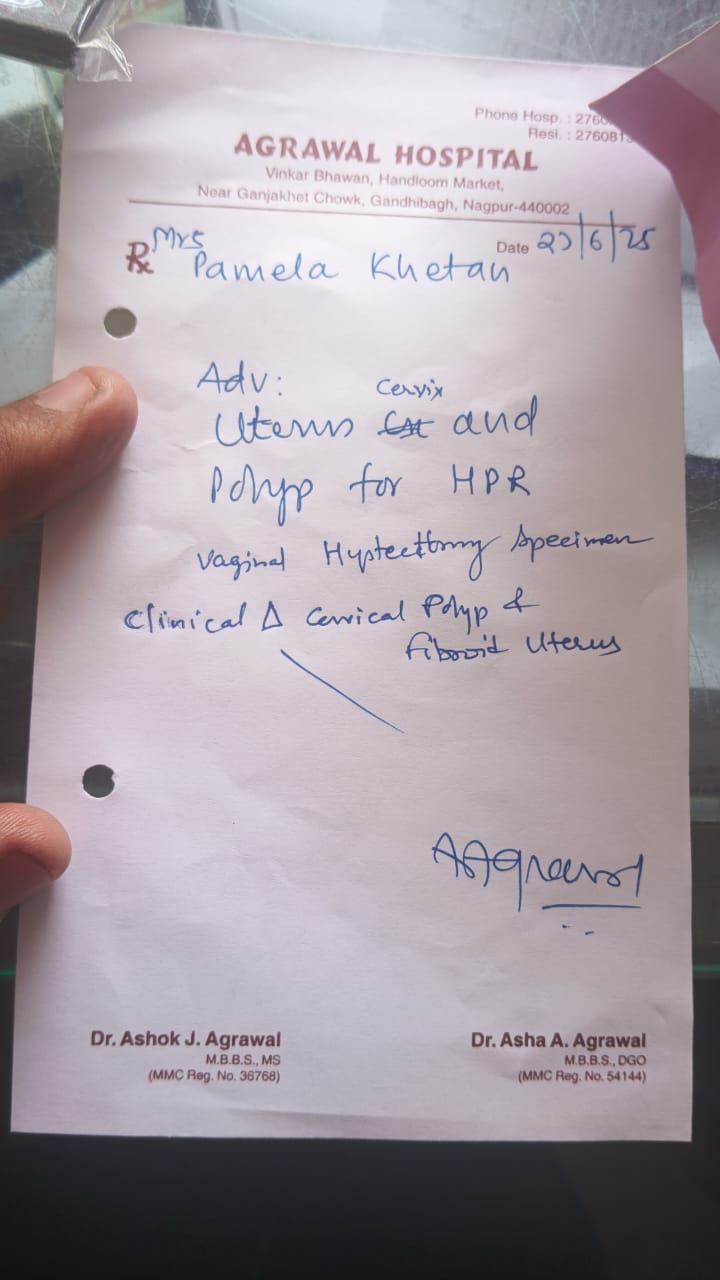 Phone Hosp. : 2760
Resi. : 276081
AGRAWAL HOSPITAL
Vinkar Bhawan, Handloom Market,
Near Ganjakhet Chowk, Gandhibagh, Nagpur-440002
Rx Mrs Date
Pamela Khetan
Adv: Cervix
Uterus and
Polyp for HPR
Vaginal Hyptecttomy Specimen
Clinical Δ Cervical Polyp &
Fibroid Uterus
AAgrawal
Dr. Ashok J. Agrawal
M.B.B.S., MS
(MMC Reg. No. 36768)
Dr. Asha A. Agrawal
M.B.B.S., DGO
(MMC Reg. No. 54144)